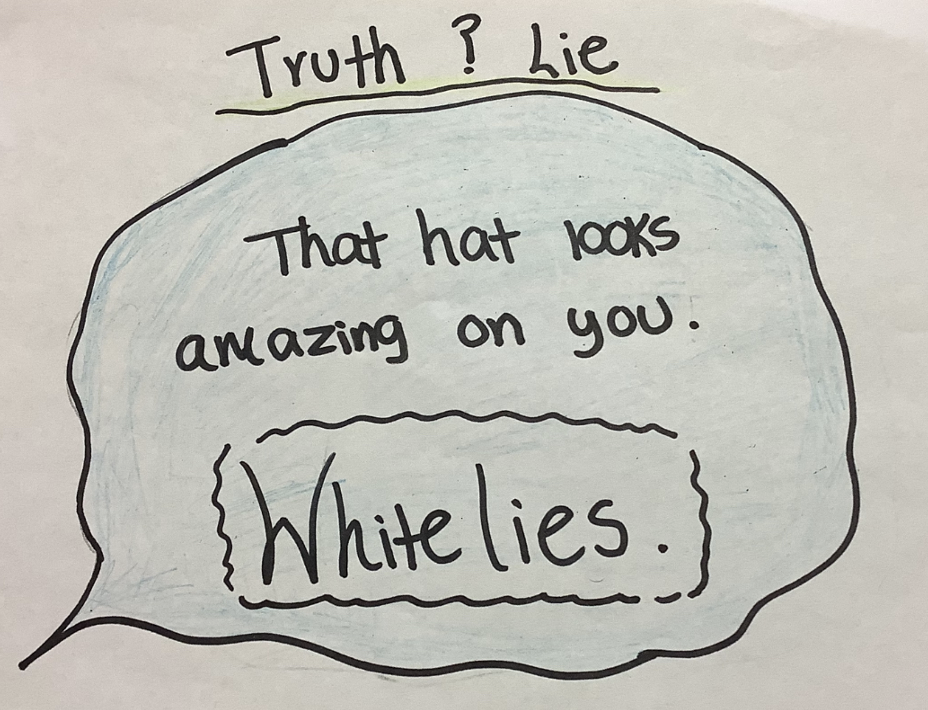 Truth ? Lie
That hat looks
amazing on you.
White lies.